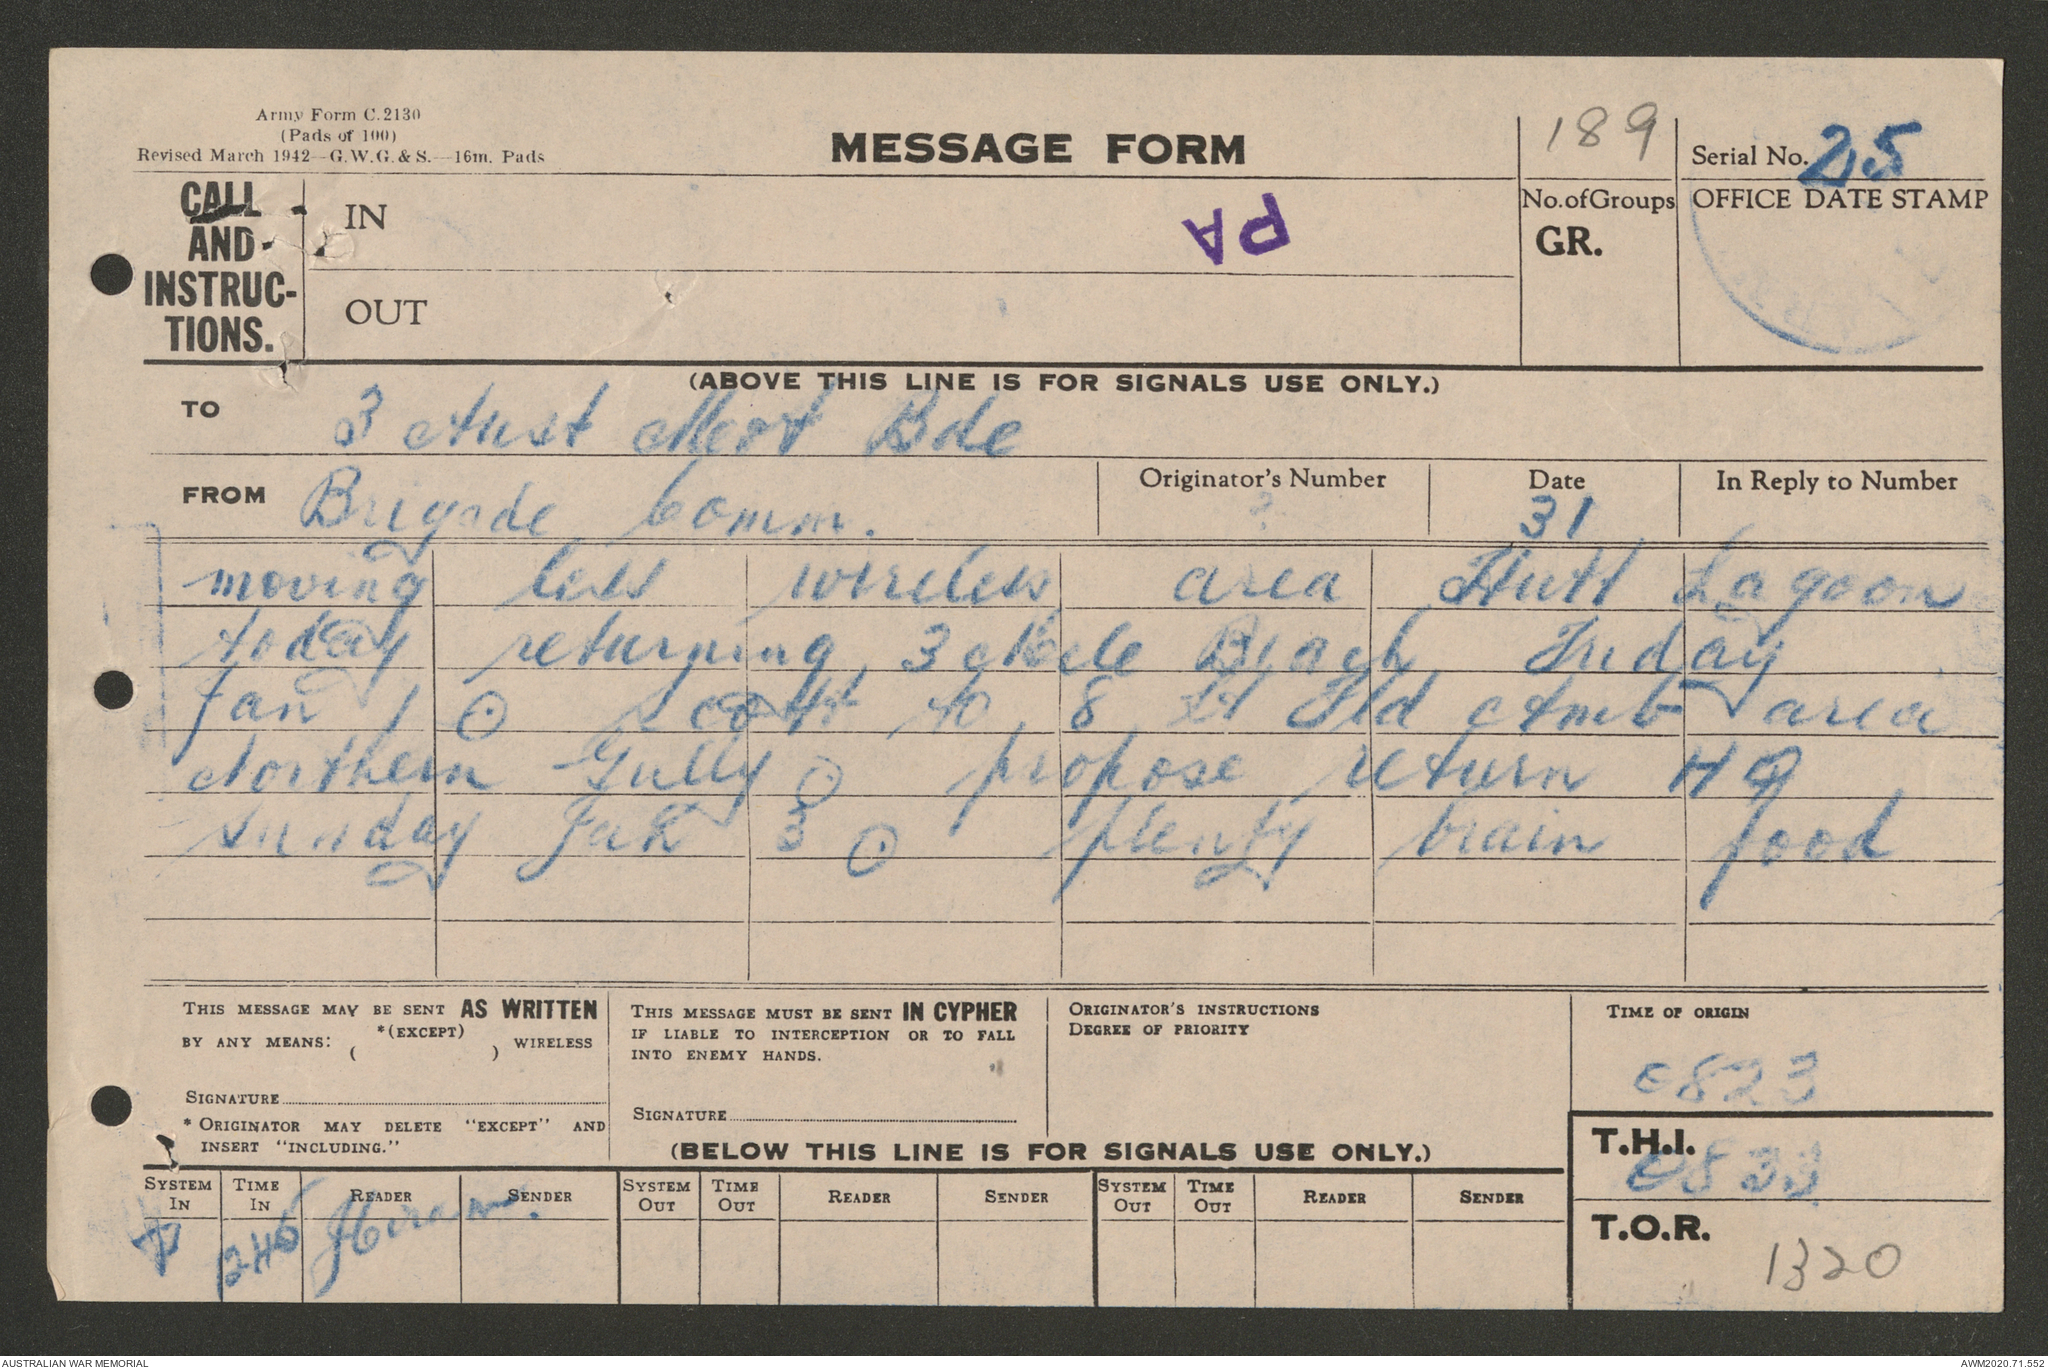 Army Form C.2130
(Pads of 100)
Revised March 1942—G.W.G.&S.—16m. Pads
MESSAGE FORM
189
Serial No. 25
CALL AND INSTRUC-TIONS.
IN
PA
No. of Groups
GR.
OFFICE DATE STAMP
OUT
(ABOVE THIS LINE IS FOR SIGNALS USE ONLY.)
TO 3 Aust Mort Bde
FROM Brigade Comm.
Originator's Number
Date
31
In Reply to Number
moving less wireless area Hutt Lagoon
today returning 3 Mile Beach Friday
Jan 1 ⊙ to 8 Lt Fld Amb area
Northern Gully ⊙ propose return HQ
Sunday Jan 3 ⊙ plenty brain food
THIS MESSAGE MAY BE SENT AS WRITTEN
BY ANY MEANS: *(EXCEPT) ( ) WIRELESS
SIGNATURE
* ORIGINATOR MAY DELETE "EXCEPT" AND
INSERT "INCLUDING."
THIS MESSAGE MUST BE SENT IN CYPHER
IF LIABLE TO INTERCEPTION OR TO FALL
INTO ENEMY HANDS.
SIGNATURE
ORIGINATOR'S INSTRUCTIONS
DEGREE OF PRIORITY
TIME OF ORIGIN
0823
(BELOW THIS LINE IS FOR SIGNALS USE ONLY.)
T.H.I.
0833
SYSTEM IN TIME IN READER SENDER SYSTEM OUT TIME OUT READER SENDER SYSTEM OUT TIME OUT READER SENDER
1245
T.O.R.
1320
AUSTRALIAN WAR MEMORIAL
AWM2020.71.552